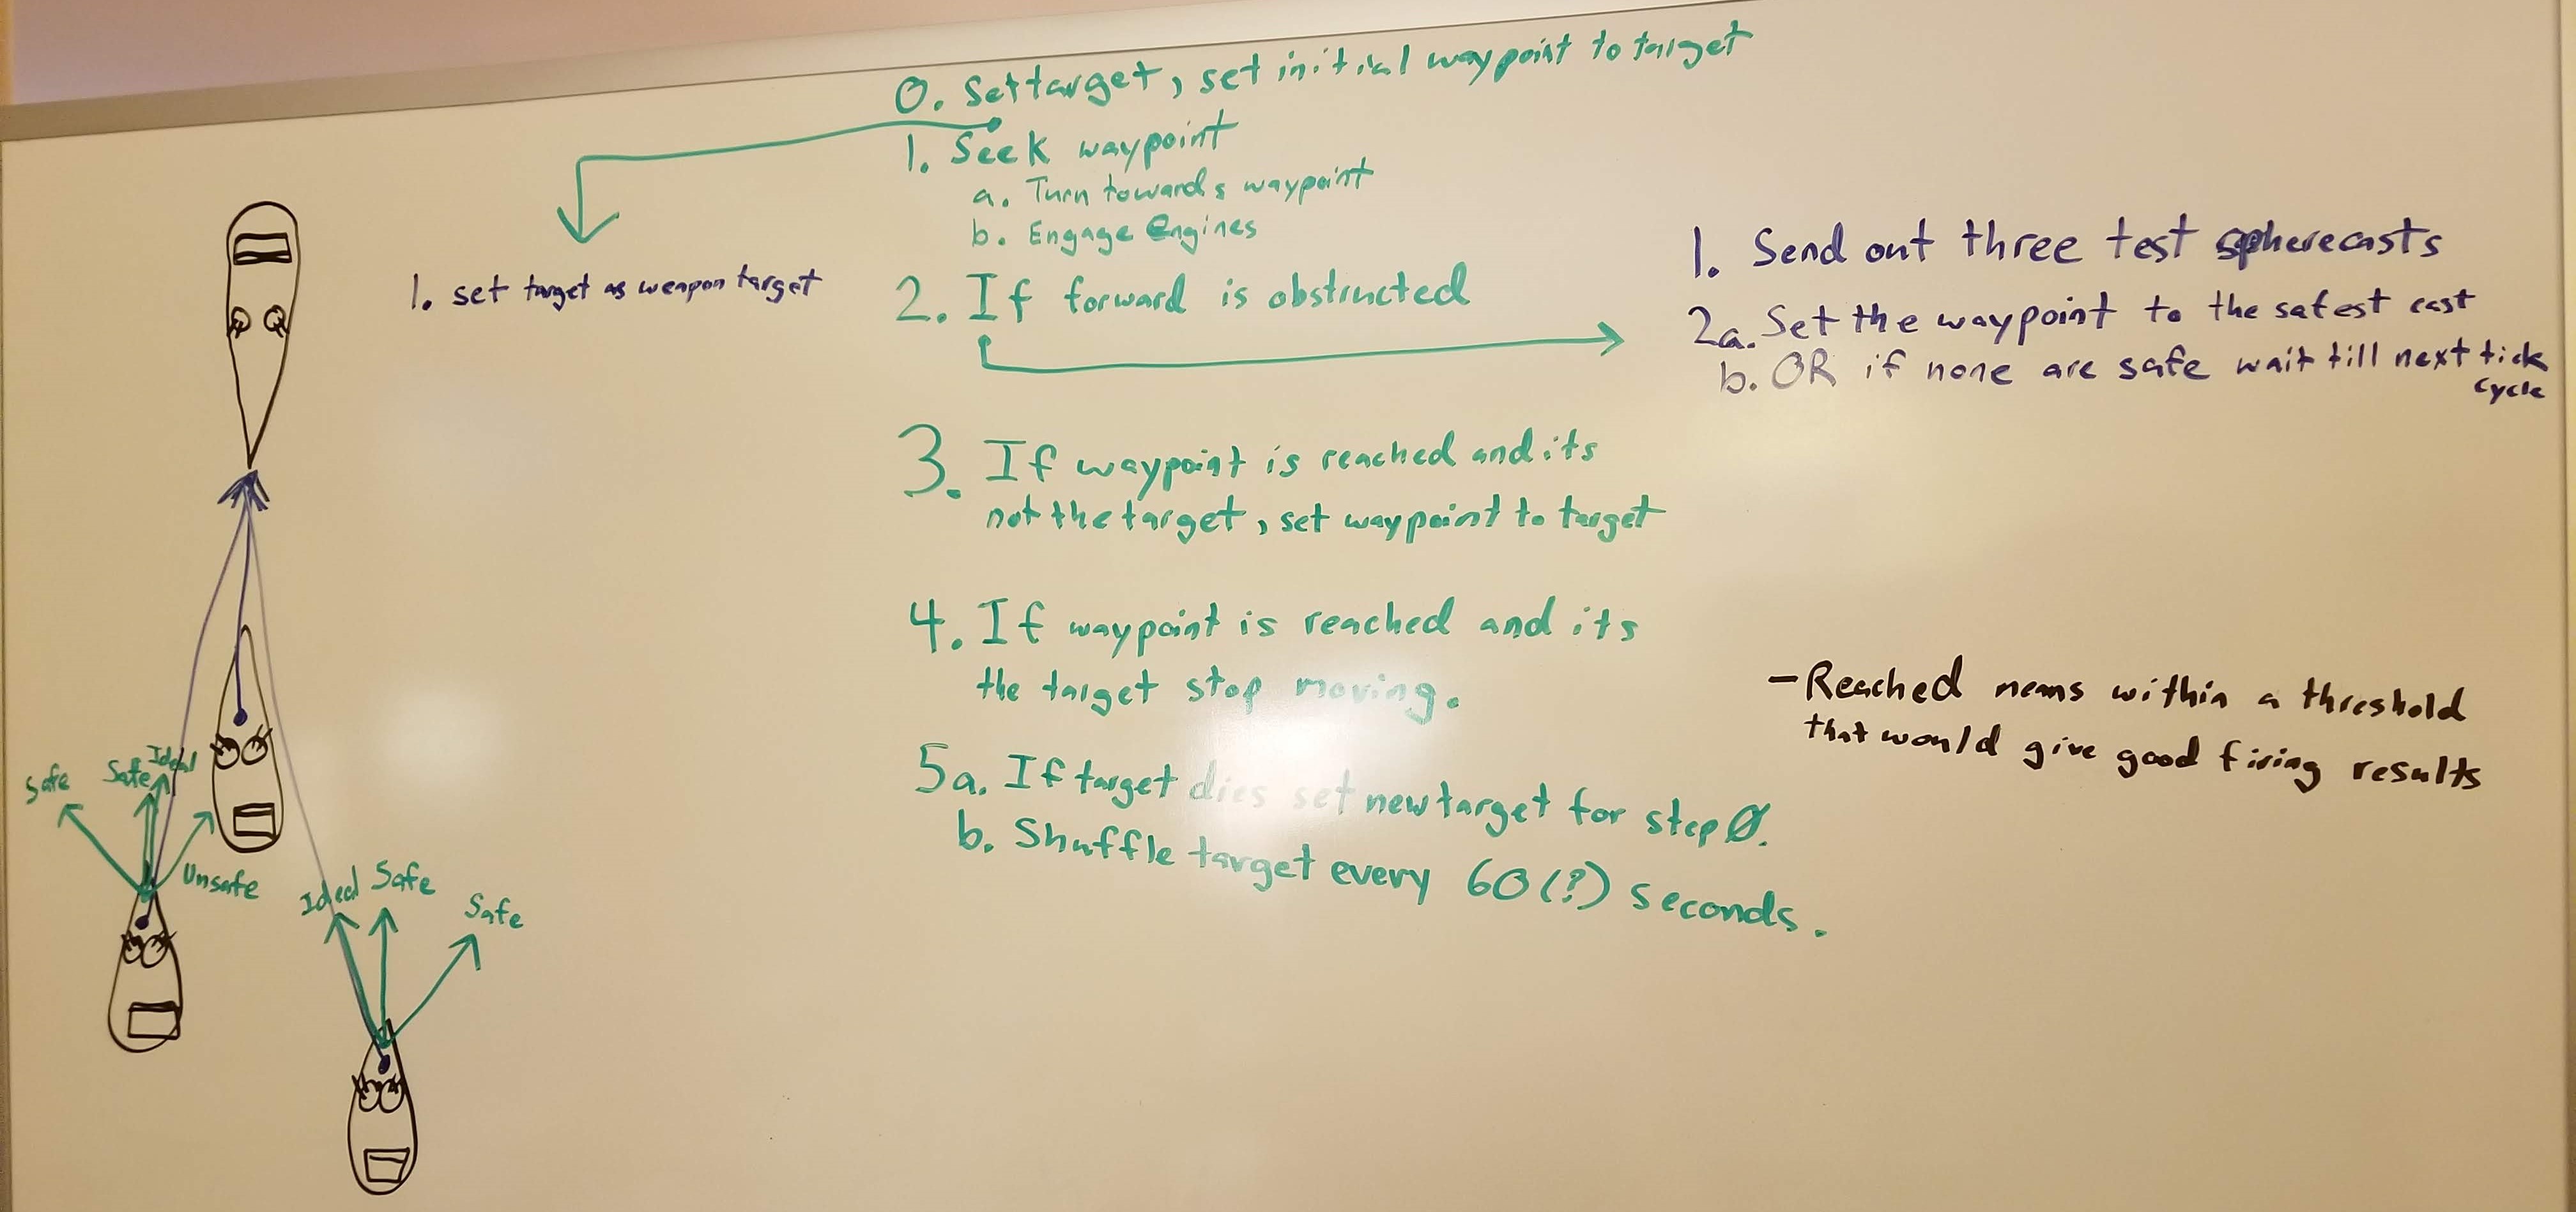 0. Set target, set initial waypoint to target
1. Seek waypoint
a. Turn towards waypoint
b. Engage Engines
1. set target as weapon target
2. If forward is obstructed
1. Send out three test spherecasts
2a. Set the waypoint to the safest cast
b. OR if none are safe wait till next tick
cycle
3. If waypoint is reached and its
not the target, set waypoint to target
4. If waypoint is reached and its
the target stop moving.
- Reached means within a threshold
that would give good firing results
5a. If target dies set new target for step 0.
b. Shuffle target every 60(?) seconds.
Safe
Safe
Ideal
Unsafe
Ideal
Safe
Safe